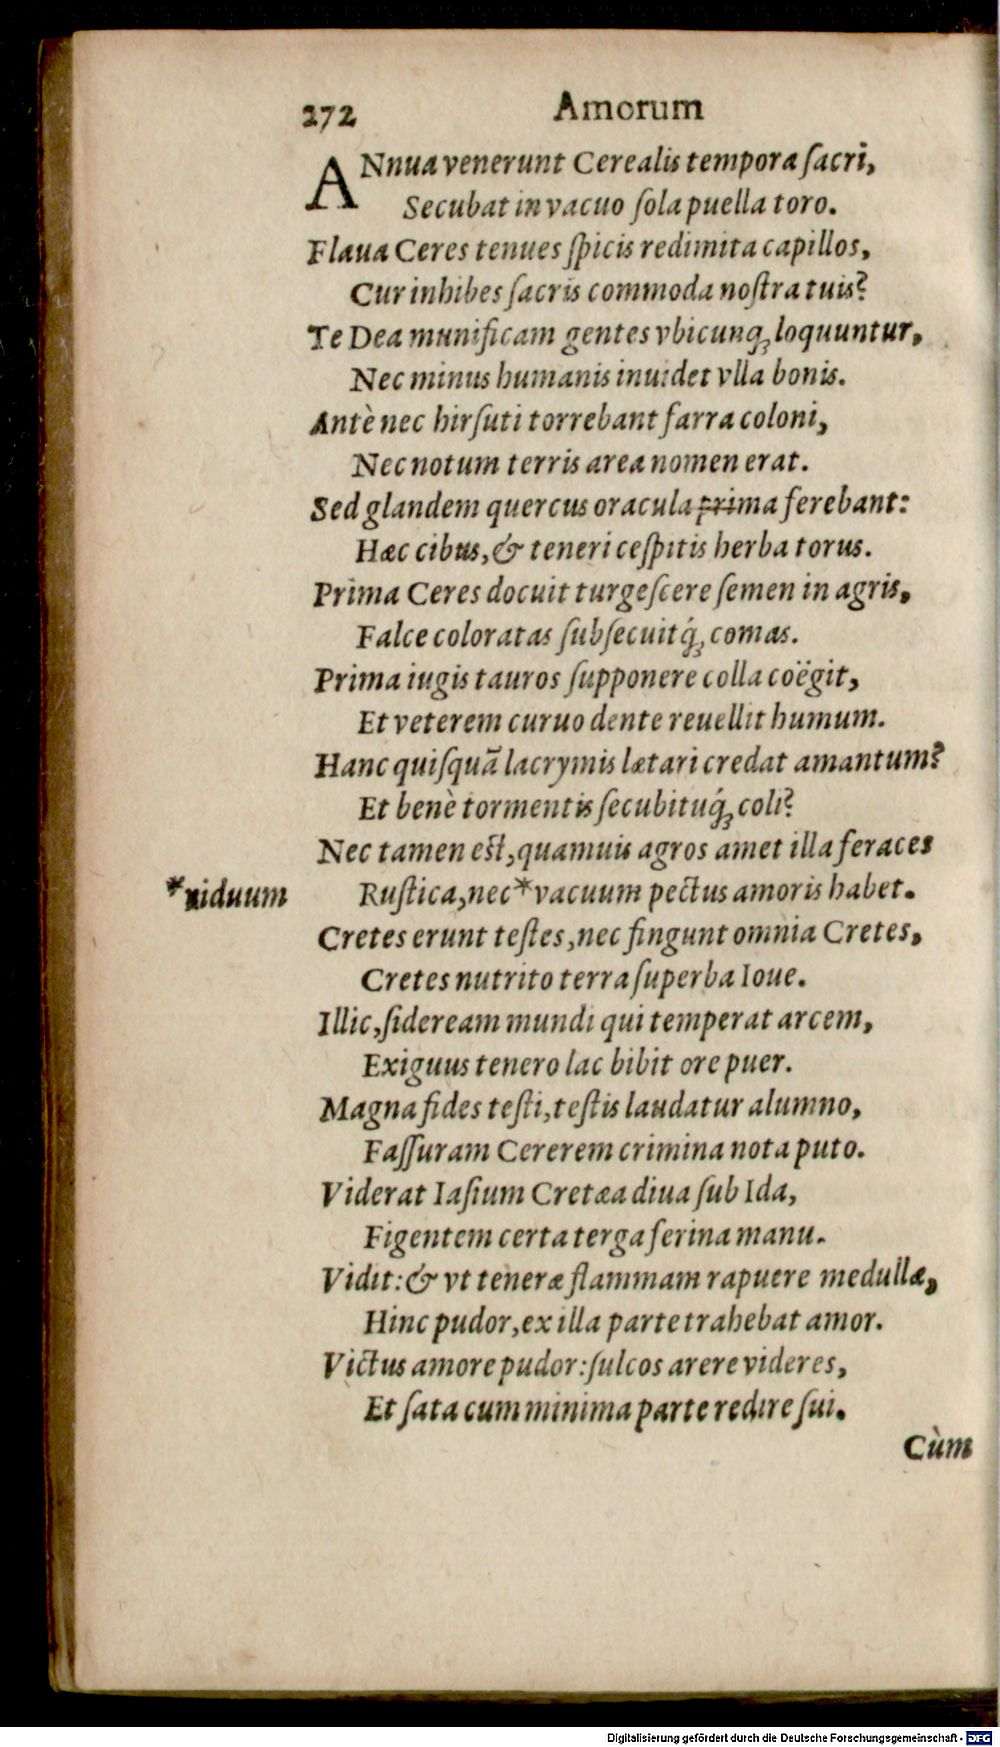 272 Amorum
ANnua venerunt Cerealis tempora ſacri,
Secubat in vacuo ſola puella toro.
Flaua Ceres tenues ſpicis redimita capillos,
Cur inhibes ſacris commoda noſtra tuis?
Te Dea munificam gentes vbicunq; loquuntur,
Nec minus humanis inuidet vlla bonis.
Antè nec hirſuti torrebant farra coloni,
Nec notum terris area nomen erat.
Sed glandem quercus oracula prima ferebant:
Hæc cibus, & teneri ceſpitis herba torus.
Prima Ceres docuit turgeſcere ſemen in agris,
Falce coloratas ſubſecuitq́; comas.
Prima iugis tauros ſupponere colla coëgit,
Et veterem curuo dente reuellit humum.
Hanc quiſquã lacrymis lætari credat amantum?
Et benè tormentis ſecubituq́; coli?
Nec tamen est, quamuis agros amet illa feraces
*niduum
Ruſtica, nec *vacuum pectus amoris habet.
Cretes erunt teſtes, nec fingunt omnia Cretes,
Cretes nutrito terra ſuperba Ioue.
Illic, ſideream mundi qui temperat arcem,
Exiguus tenero lac bibit ore puer.
Magna fides teſti, teſtis laudatur alumno,
Faſſuram Cererem crimina nota puto.
Viderat Iaſium Cretæa diua ſub Ida,
Figentem certa terga ferina manu.
Vidit: & vt teneræ flammam rapuere medullæ,
Hinc pudor, ex illa parte trahebat amor.
Victus amore pudor: ſulcos arere videres,
Et ſata cum minima parte redire ſui.
Cùm
Digitalisierung gefördert durch die Deutsche Forschungsgemeinschaft - DFG